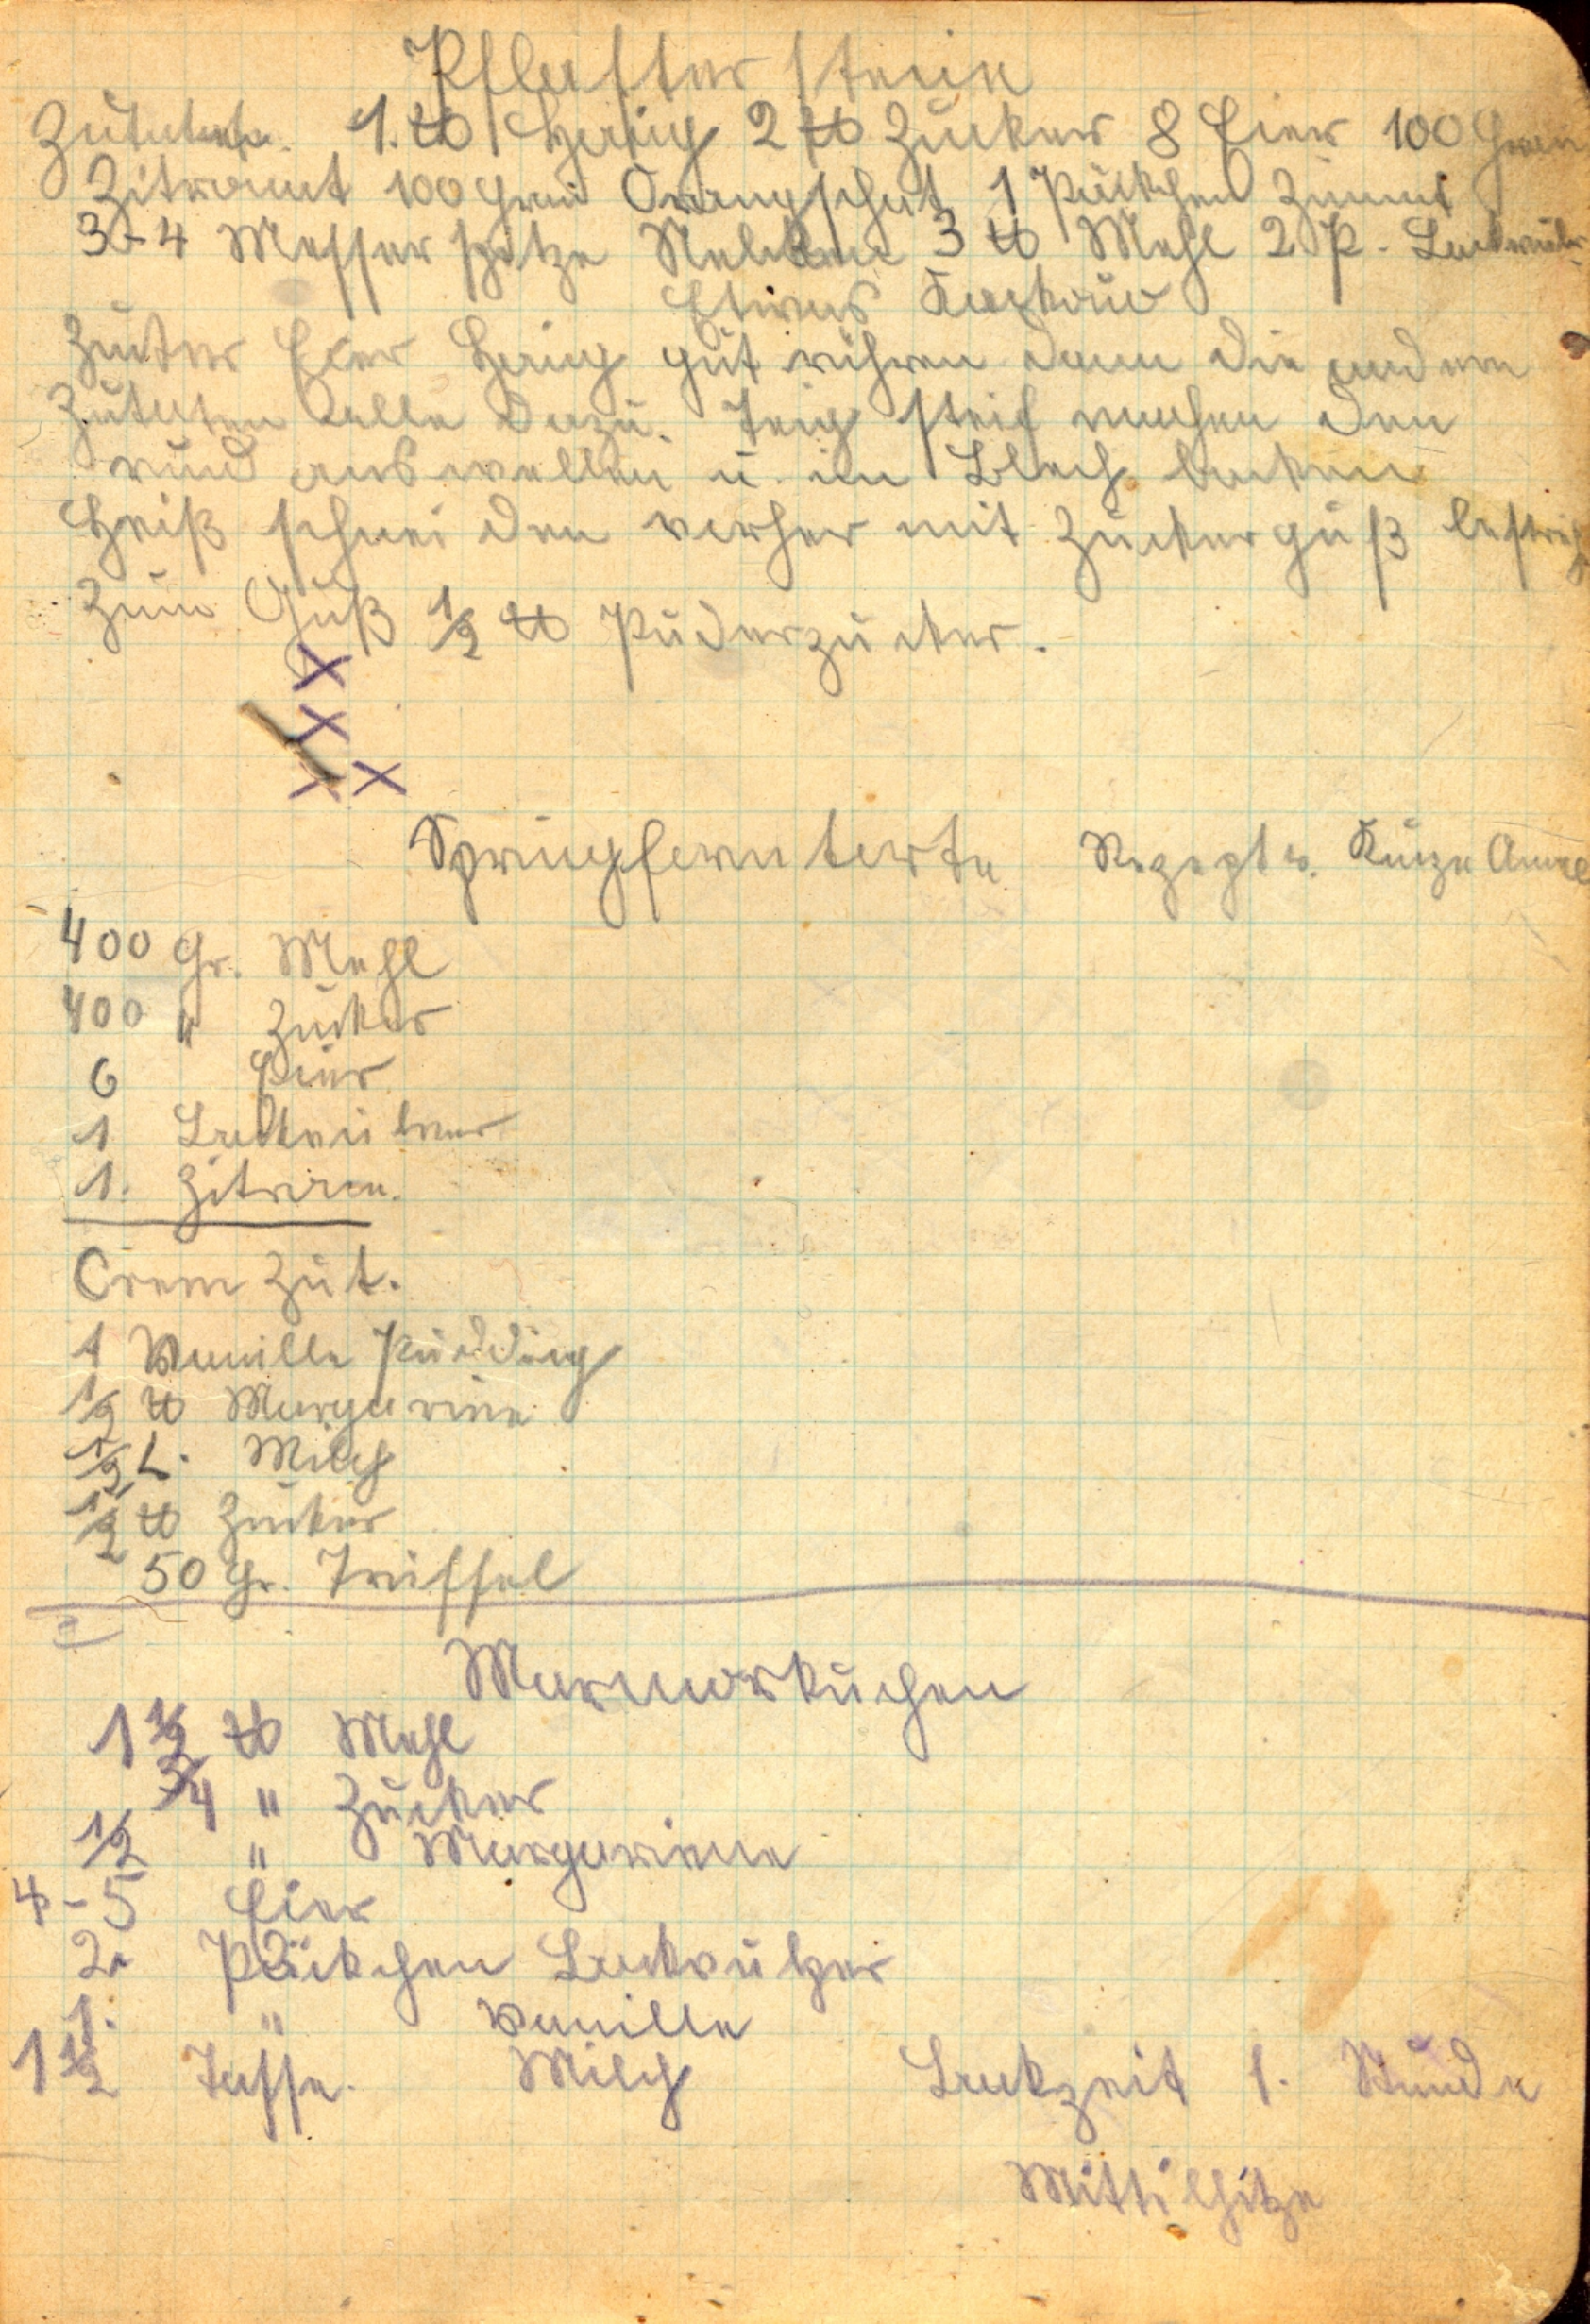 Pflaster steine
Zutaten. 1. ℔ Honig 2 ℔ Zucker 8 Eier 100 Gram
Zitronat 100 Gram Orangschat 1 Päckchen Zimmt
3-4 Messer spitze Nelken 3 ℔ Mehl 2 P. Backpulv.
Etwas Kackau
Zucker Eier Honig gut rühren dann die andern
Zutaten alle dazu. Teig steif machen den
rund auswellen u. im Blech backen
Heiß schnei den vorher mit Zuckerguß bestrich
Zum Guß 1/2 ℔ Puderzucker.
X
X
X X
torte Rezept v. Anna
400 Gr. Mehl
400 " Zucker
6 Eier
1 Backpulver
1. Zitrone.
Crem Zut.
1 Vanille Pudding
1/2 ℔ Margarine
1/2 L. Milch
1/2 ℔ Zucker
50 Gr. Trüffel
Marmorkuchen
1 1/2 ℔ Mehl
3/4 " Zucker
1/2 " Margariene
4-5 Eier
2. Päckchen Backpulver
1. " Vanille
1 1/2 Tasse. Milch Backzeit 1. Stunde
Mittelhitze